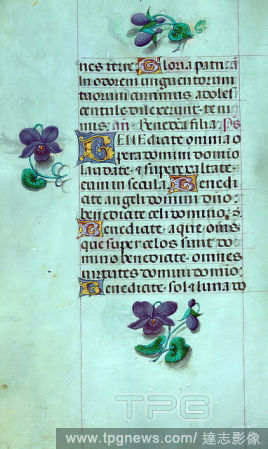 nes terre Gloria patri. añ
In odorem unguentorum
tuorum currimus adoles
centule dilexerunt te ni
mis. an. Benedicta filia. Ps
BENEDICITE omnia o
pera domini domino
laudate & superexaltate
eum in secula. Benedi
cite angeli domini dno:
benedicite celi domino.
Benedicite aque omẽs
que super celos sunt do
mino benedicite omnes
virtutes domini domino:
Benedicite sol & luna do
TPG
www.tpgnews.com / 達志影像